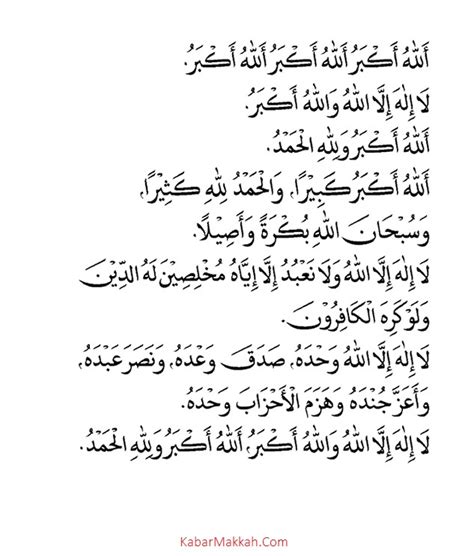 أَللهُ أَكْبَرُ أَللهُ أَكْبَرُ أَللهُ أَكْبَرُ.
لَا إِلٰهَ إِلَّا اللهُ وَاللهُ أَكْبَرُ.
أَللهُ أَكْبَرُ وَلِلّٰهِ الْحَمْدُ.
أَللهُ أَكْبَرُ كَبِيْرًا، وَالْحَمْدُ لِلّٰهِ كَثِيْرًا،
وَسُبْحَانَ اللهِ بُكْرَةً وَأَصِيْلًا.
لَا إِلٰهَ إِلَّا اللهُ وَلَا نَعْبُدُ إِلَّا إِيَّاهُ مُخْلِصِيْنَ لَهُ الدِّيْنَ
وَلَوْ كَرِهَ الْكَافِرُوْنَ.
لَا إِلٰهَ إِلَّا اللهُ وَحْدَهُ، صَدَقَ وَعْدَهُ، وَنَصَرَ عَبْدَهُ،
وَأَعَزَّ جُنْدَهُ وَهَزَمَ الْأَحْزَابَ وَحْدَهُ.
لَا إِلٰهَ إِلَّا اللهُ وَاللهُ أَكْبَرُ، أَللهُ أَكْبَرُ وَلِلّٰهِ الْحَمْدُ.
KabarMakkah.Com